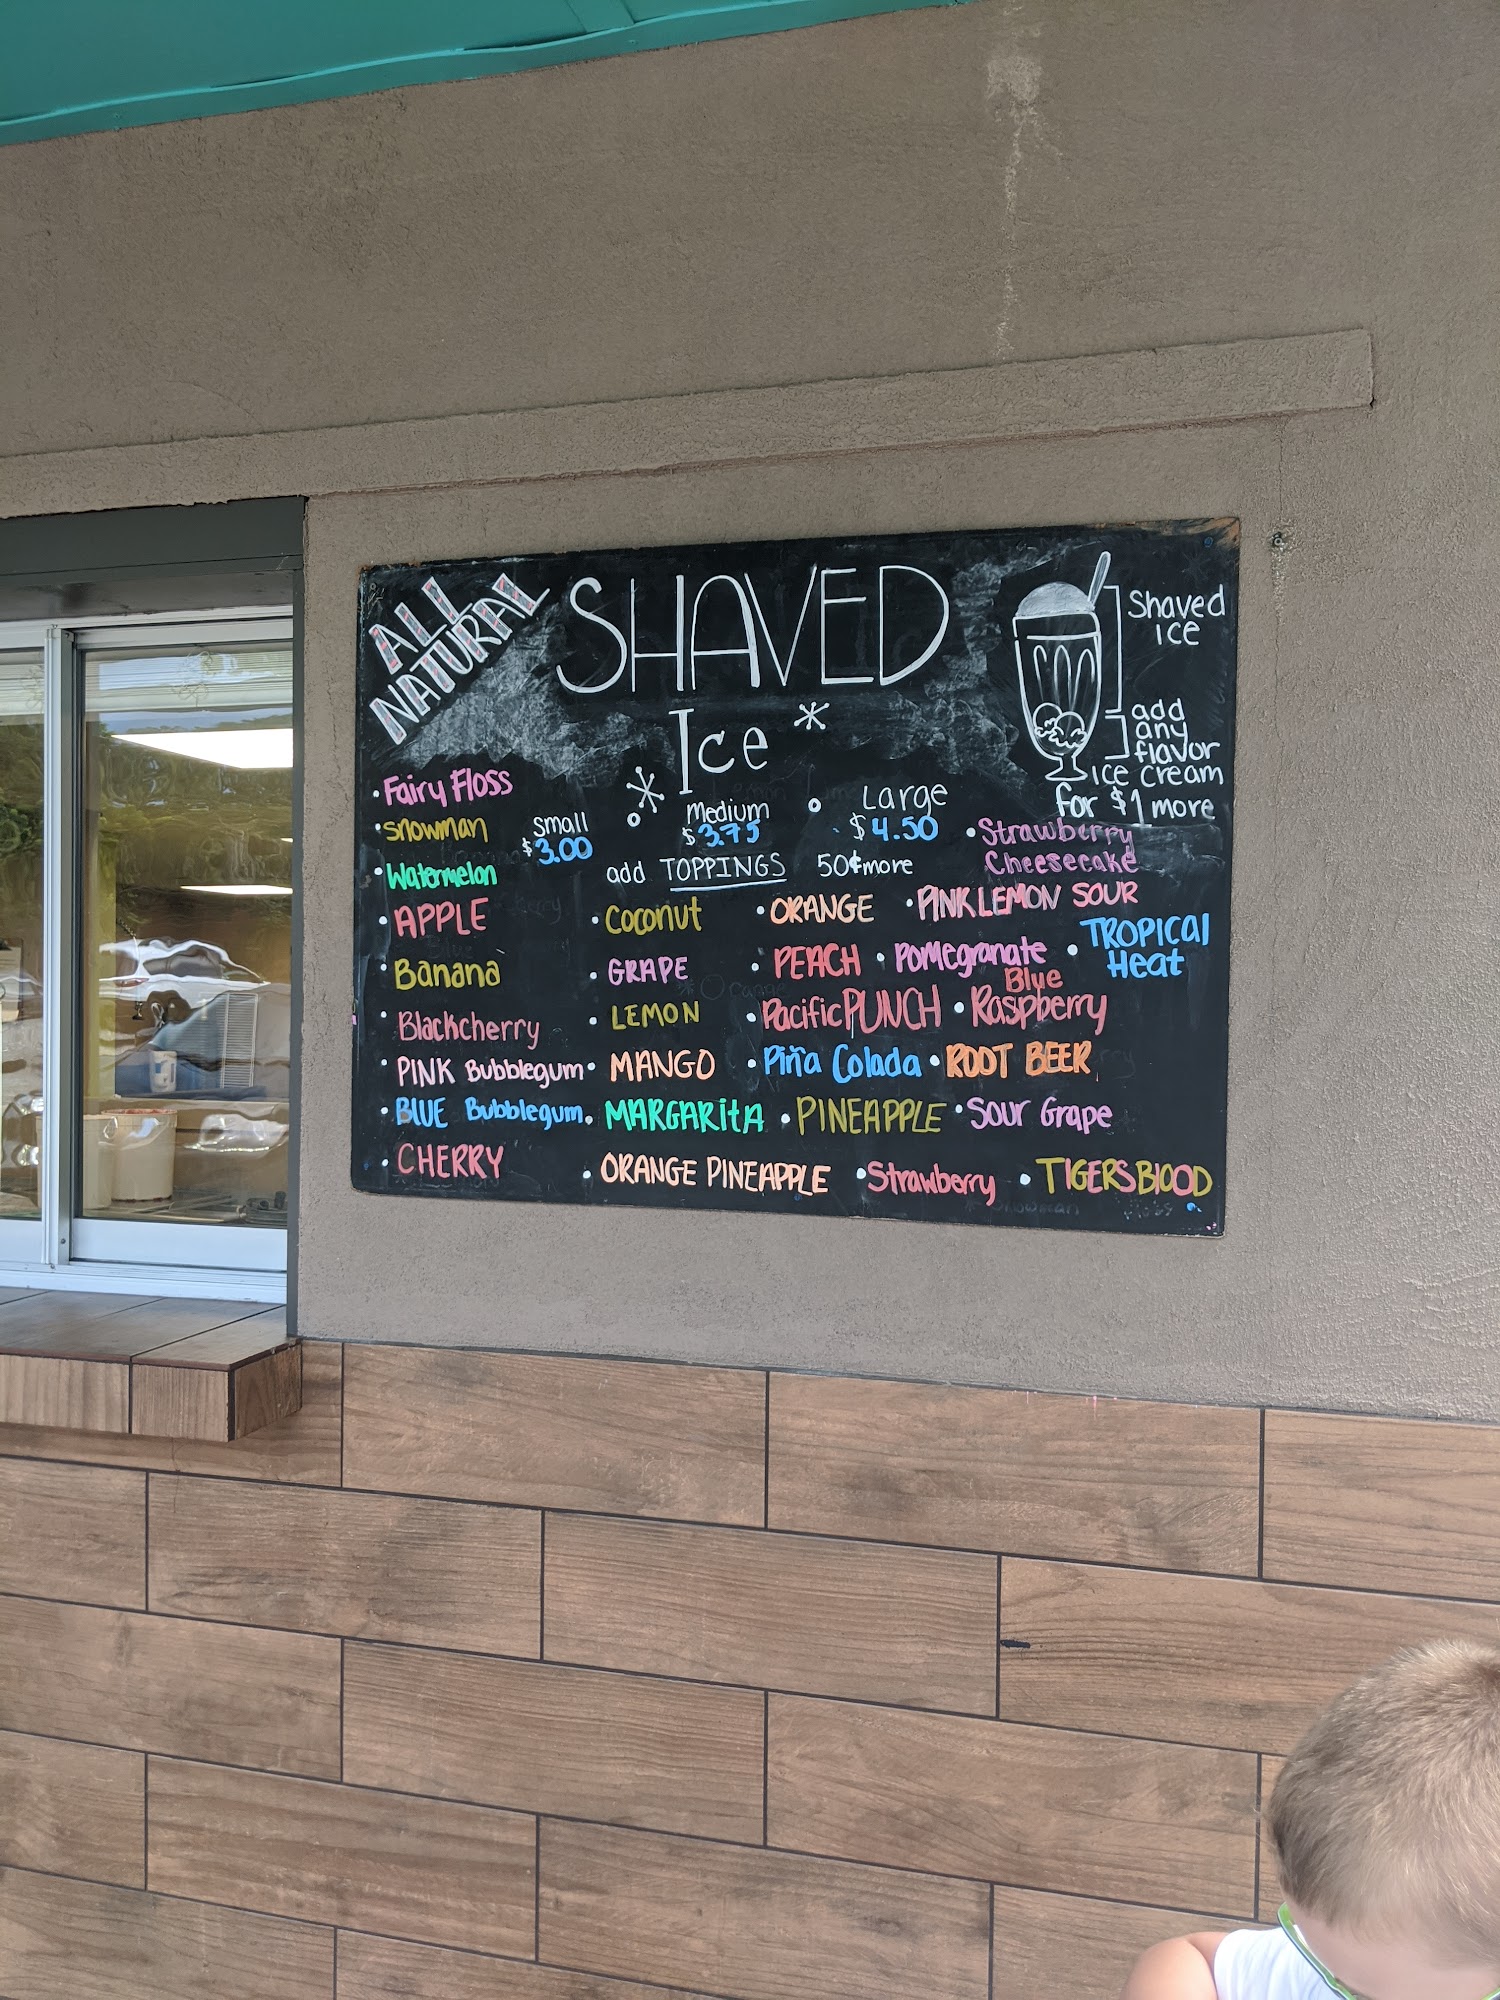 ALL
NATURAL
SHAVED
Ice
Shaved
ice
add
any
flavor
ice cream
for $1 more
• Fairy Floss
• snowman
• Watermelon
small
$3.00
Medium
$3.75
Large
$4.50
add TOPPINGS 50¢ more
• Strawberry
Cheesecake
• APPLE
• Banana
• Blackcherry
• PINK Bubblegum
• BLUE Bubblegum
• CHERRY
• Coconut
• GRAPE
• LEMON
• MANGO
• MARGARITA
• ORANGE PINEAPPLE
• ORANGE
• PEACH
• Pacific PUNCH
• Piña Colada
• PINEAPPLE
• Strawberry
• PINK LEMON SOUR
• Pomegranate
• Blue
Raspberry
• ROOT BEER
• Sour Grape
• TIGERS BlOOD
• TROPICAL
Heat